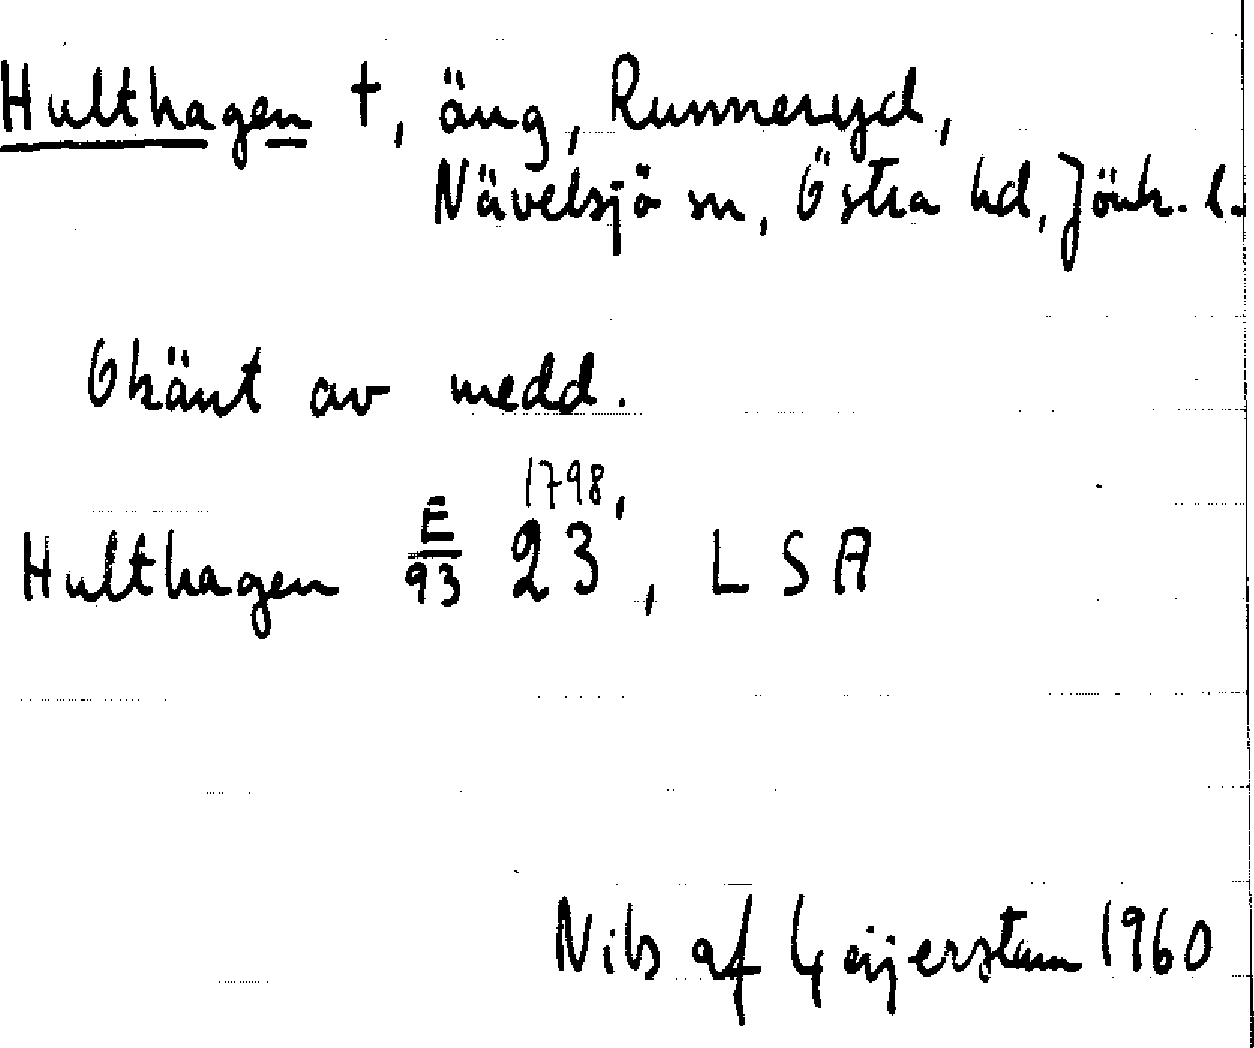 Hulthagen †, äng, Runneryd,
Nävelsjö sn, Östra hd, Jönk. l.
Okänt av medd.
1798,
Hulthagen E/93 23, LSA
Nils af Geijerstam 1960